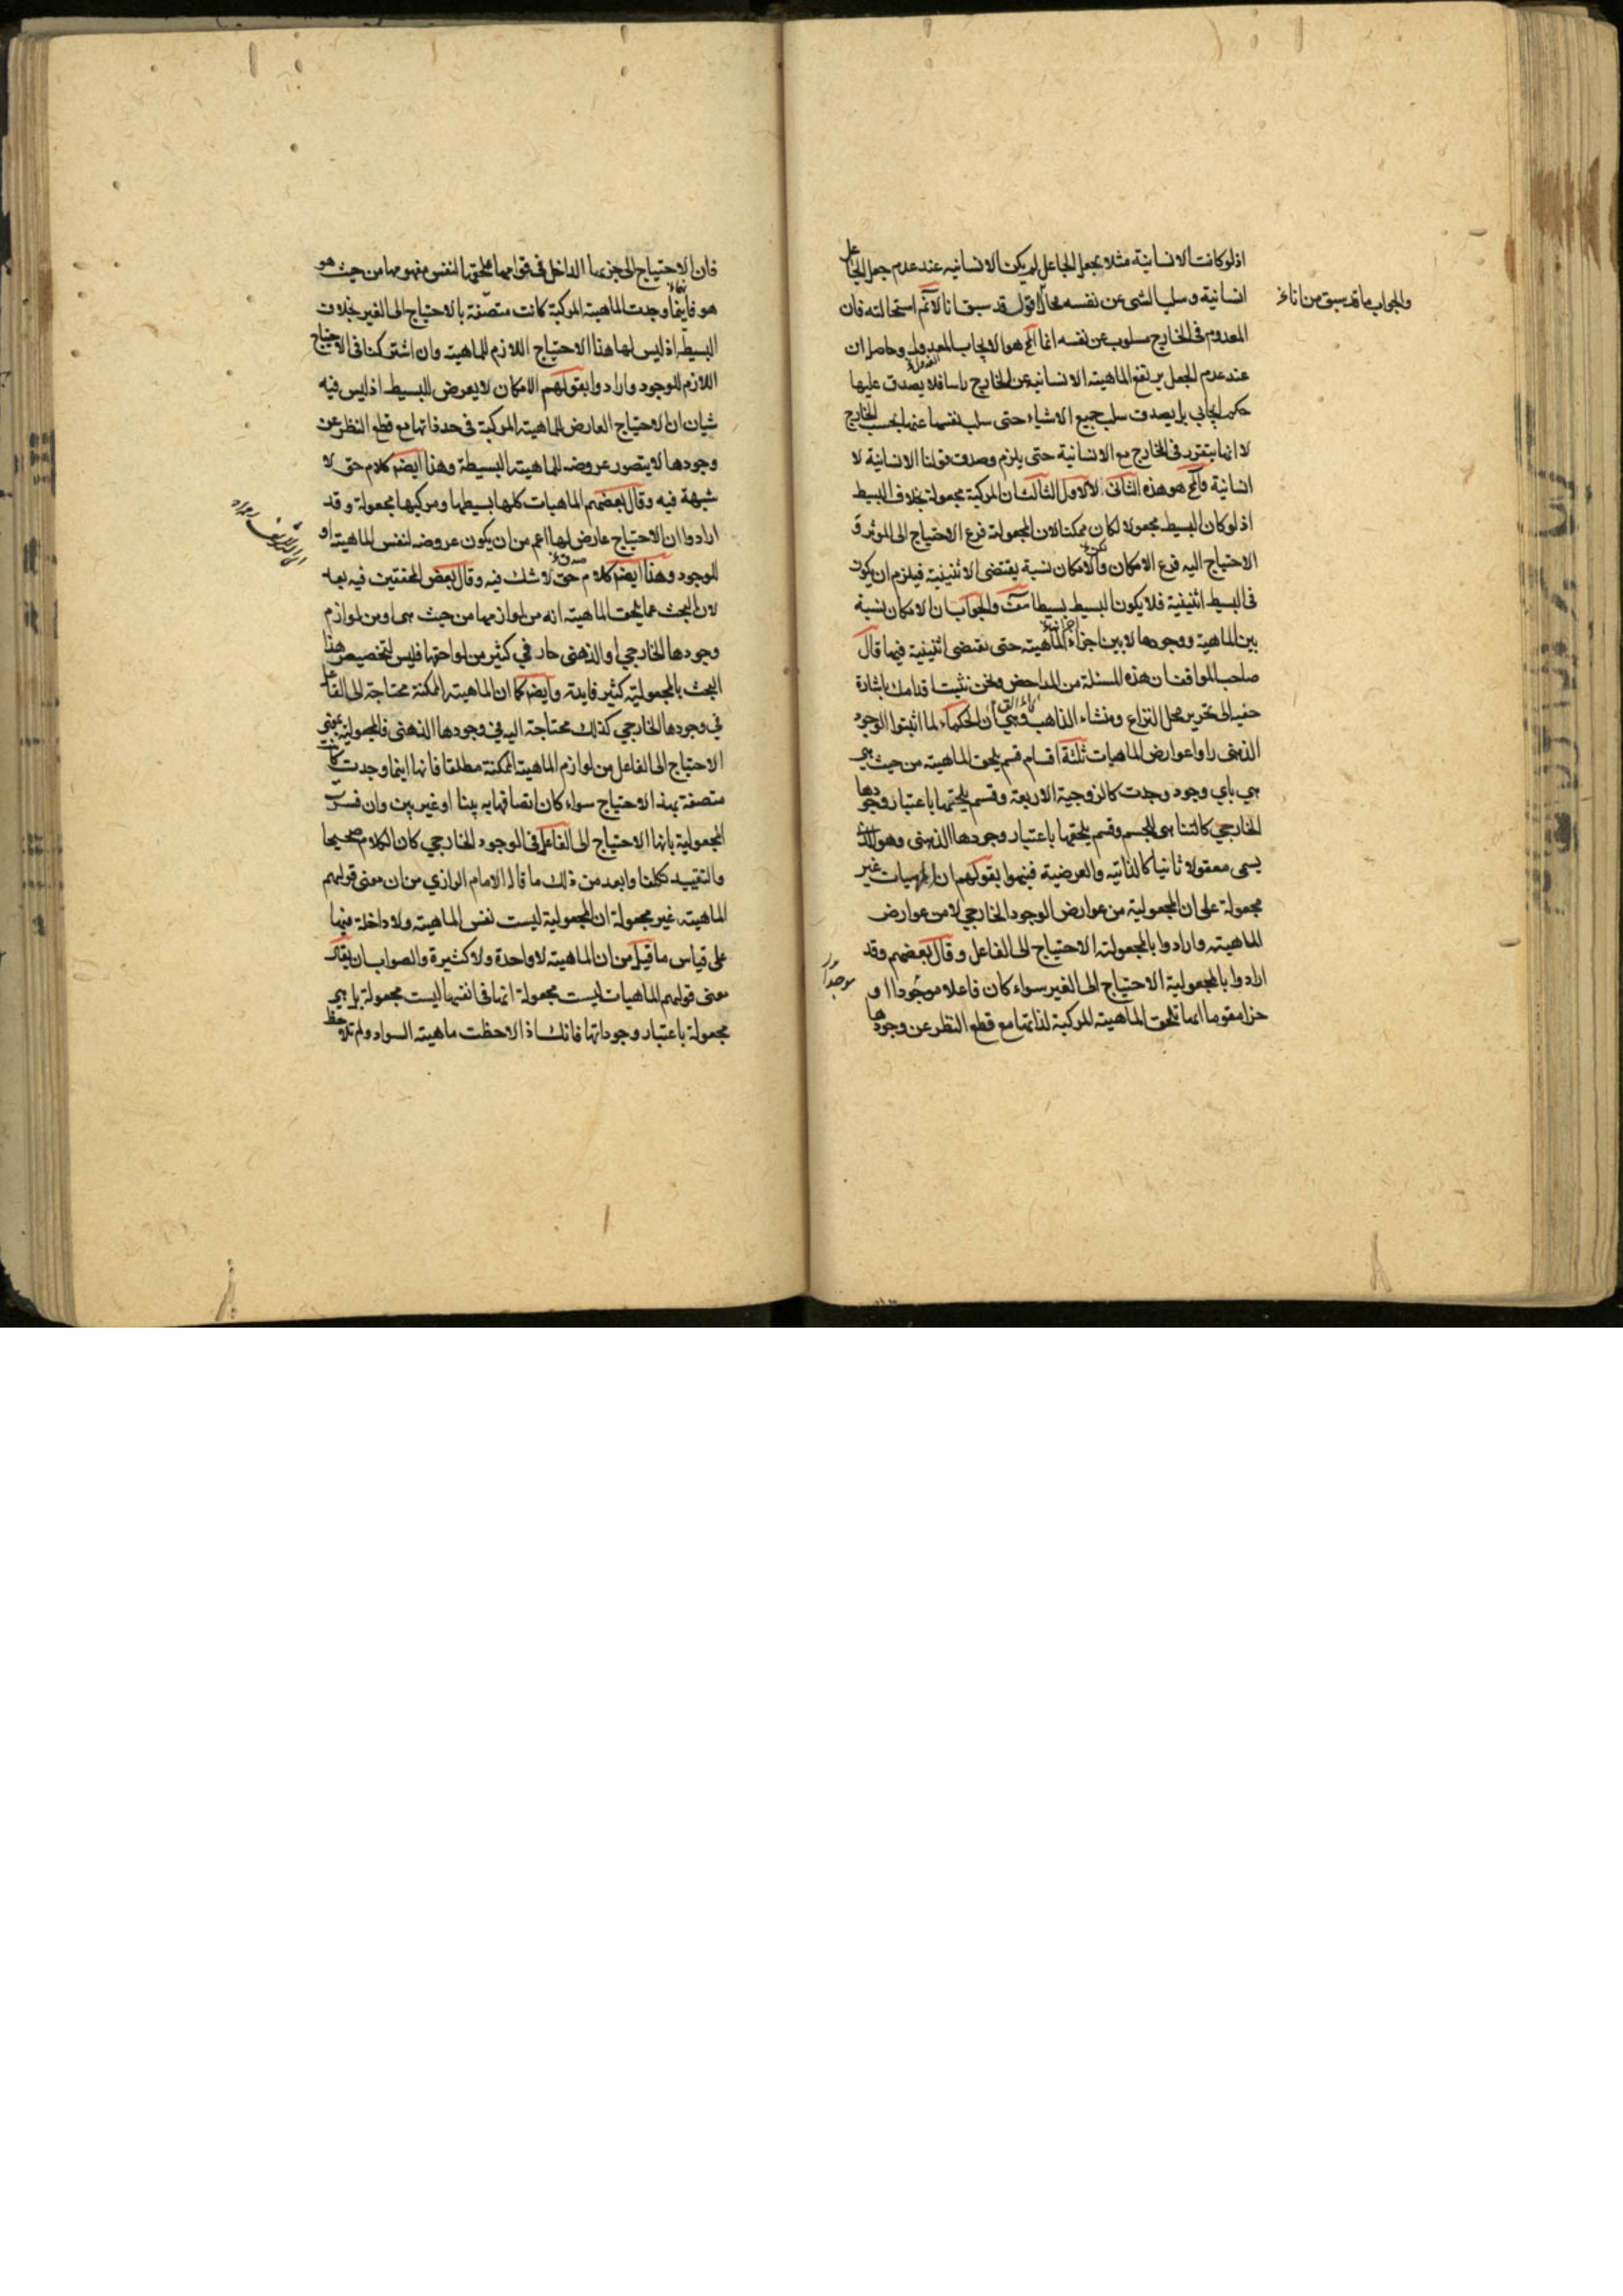 اذ لو كانت الانسانية مثلا بجعل الجاعل لم يكن الانسانيه عند عدم جعل الجاعل
انسانية وسلب الشى عن نفسه محال اقول قد سبق انا لانم استحالته فان
والجواب ما قد سبق من انا
المعدوم فى الخارج مسلوب عن نفسه انما المح هو الايجاب المعدول وحاصله ان
عند عدم الجعل يرتفع الماهيته الانسانية عن الخارج راسا فلا يصدق عليها
حكم ايجابي بل يصدق سلب جميع الاشياء حتى سلب نفسها عنها بحسب الخارج
لا انها يتقرر فى الخارج مع الانسانية حتى يلزم وصدق قولنا الانسانية لا
انسانية والمح هو هذه الثانى لا الاول الثالث ان المركبة مجعولة بخلاف البسيط
اذ لو كان البسيط مجعولا لكان ممكنا لان المجعولته فرع الاحتياج الى الموثر و
الاحتياج اليه فرع الامكان والامكان نسبة يقتضى الاثنينية فيلزم ان يكون
فى البسيط اثنينية فلا يكون البسيط بسيطا هف والجواب ان الامكان نسبة
بين الماهية ووجودها لا بين اجزاء الماهيته حتى يقتضى اثنينية فيها قال
صاحب المواقف ان هذه المسئلة من المداحض ونحن نثبت اقدامك باشارة
خفيه الى تحرير محل النزاع ومنشاء الذاهب وهي ان الحكماء لما اثبتوا الوجود
الذهنى راوا عوارض الماهيات ثلثة اقسام قسم يلحق الماهيته من حيث هى
هي باي وجود وجدت كالزوجية الاربعة وقسم يلحقها باعتبار وجودها
الخارجي كالتناهى للجسم وقسم يلحقها باعتبار وجودها الذهنى وهو الذى
يسمى معقولا ثانيا كالذاتيه والعرضية فنبهوا بقولهم ان المهيات غير
مجعولة على ان المجعولية من عوارض الوجود الخارجي لا من عوارض
الماهيته وارادوا بالمجعولته الاحتياج الى الفاعل وقال بعضهم وقد
ارادوا بالمجعولية الاحتياج الى الغير سواء كان فاعلا موجودا او
موجدا
جزا مقوما انها تلحق الماهيته المركبة لذاتها مع قطع النظر عن وجودها
فان الاحتياج الى جزءها الداخل فى قوامها يلحقها لنفس مفهومها من حيث هو
هو فاينما وجدت الماهيته المركبة كانت متصفة بالاحتياج الى الغير بخلاف
البسيطه اذ ليس لها هذا الاحتياج اللازم للماهيته وان اشتركتا فى الاحتياج
اللازم للوجود وارادوا بقولهم الامكان لا يعرض للبسيط اذ ليس فيه
شيان ان الاحتياج العارض للماهيته المركبة فى حد ذاتها مع قطع النظر عن
وجودها لا يتصور عروضه للماهيته البسيطة وهذا ايضم كلام حق لا
شبهة فيه وقال بعضهم الماهيات كلها بسيطها ومركبها مجعولة وقد
ارادوا ان الاحتياج عارض لها اعم من ان يكون عروضه لنفس الماهيته او
للوجود وهذا ايضم كلام حق لا شك فيه وقال بعض المحققين فيه بعد
لان البحث عما يلحق الماهيته انه من لوازمها من حيث هى او من لوازم
وجودها الخارجي او الذهنى جار في كثير من لواحقها فليس لتخصيص هذا
البحث بالمجعوليته كثير فايدته وايضم كما ان الماهيته الممكنة محتاجة الى الفاعل
في وجودها الخارجي كذلك محتاجة اليه في وجودها الذهنى فالمجعولية بمعنى
الاحتياج الى الفاعل من لوازم الماهيته الممكنة مطلقا فانها اينما وجدت كانت
متصفة بهذا الاحتياج سواء كان اتصافها به بينا او غير بين وان فسرت
المجعولية بانها الاحتياج الى الفاعل فى الوجود الخارجي كان الكلام صحيحا
والتقييد تكلفا وابعد من ذلك ما قاله الامام الرازي من ان معنى قولهم
الماهيته غير مجعولة ان المجعولية ليست نفس الماهيته ولا داخلة فيها
على قياس ما قيل من ان الماهيته لا واحدة ولا كثيرة والصواب ان يقال
معنى قولهم الماهيات ليست مجعولة انها فى انفسها ليست مجعولة بل هى
مجعولة باعتبار وجوداتها فانك اذ الاحظت ماهيته السواد ولم تلاحظ